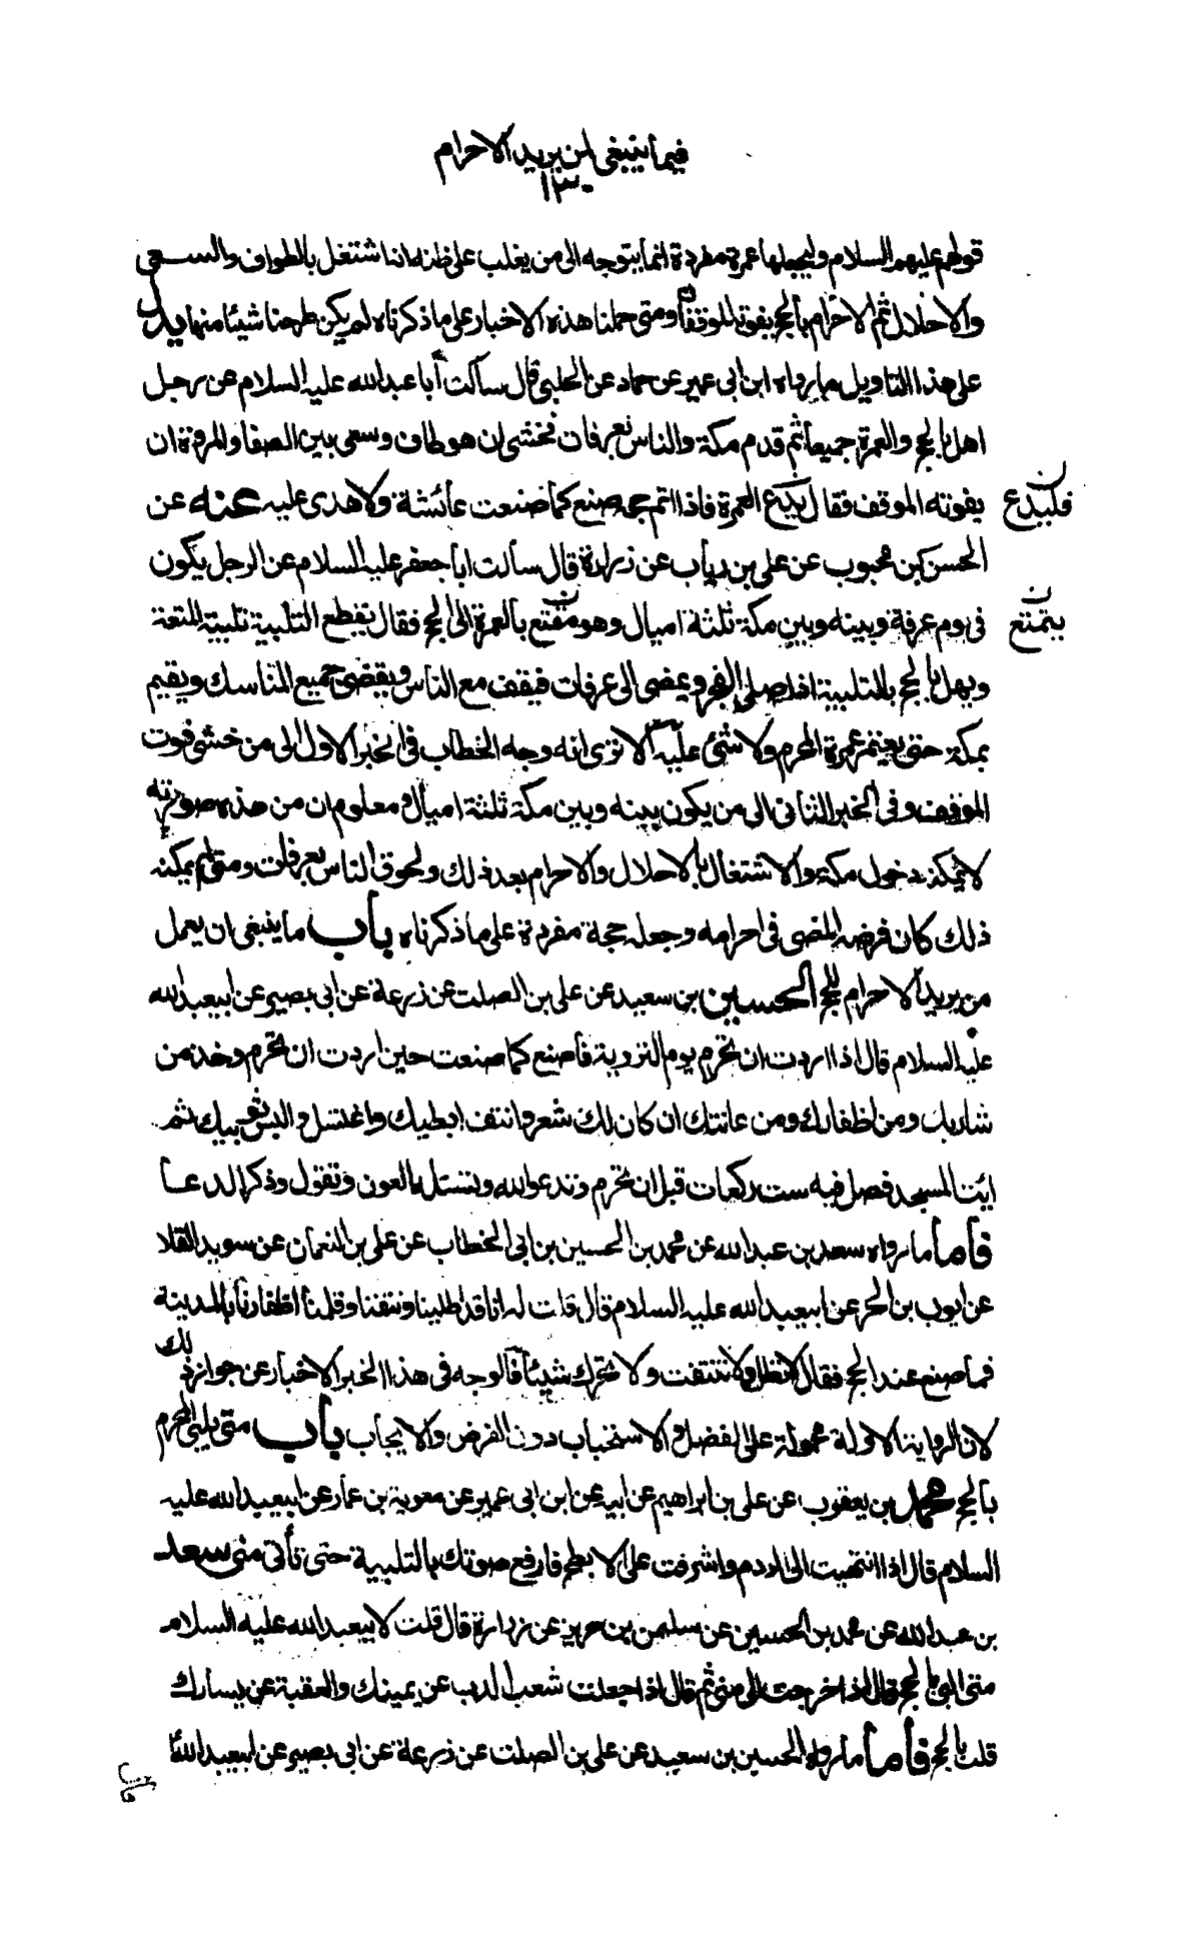 فيما ينبغي لمن يريد الاحرام
١٣٠
قولهم عليهم السلام وليجعلها عمرة مفردة انما يتوجه الى من يغلب على ظنه انه ان اشتغل بالطواف والسعي
والاحلال ثم الاحرام بالحج يفوته الموقفان ومتى حملنا هذه الاخبار على ما ذكرناه لم يكن طرحنا شيئا منها يدل
على هذا التاويل ما رواه ابن ابى عمير عن حماد عن الحلبى قال سألت أبا عبدالله عليه السلام عن رجل
اهل بالحج والعمرة جميعا ثم قدم مكة والناس بعرفات فخشى ان هو طاف وسعى بين الصفا والمروة ان
يفوته الموقف فقال يدع العمرة فاذا اتم حجه صنع كما صنعت عائشة ولا هدى عليه عنه عن
فليدع ن
الحسن بن محبوب عن على بن رياب عن زرارة قال سألت ابا جعفر عليه السلام عن الرجل يكون
فى يوم عرفة وبينه وبين مكة ثلثة اميال وهو متمتع بالعمرة الى الحج فقال يقطع التلبية تلبية المتعة
يتمتع ن
ويهل بالحج بالتلبية اذا صلى الفجر ويمضى الى عرفات فيقف مع الناس ويقضى جميع المناسك ويقيم
بمكة حتى يعتمر عمرة المحرم ولا شئ عليه الا ترى انه وجه الخطاب فى الخبر الاول الى من خشى فوت
الموقف وفى الخبر الثانى الى من يكون بينه وبين مكة ثلثة اميال ومعلوم ان من هذه صورته
لا يمكنه دخول مكة والاشتغال بالاحلال والاحرام بعد ذلك ولحوق الناس بعرفات ومتى لم يمكنه
ذلك كان فرضه المضى فى احرامه وجعله حجة مفردة على ما ذكرناه باب ما ينبغى ان يعمل
من يريد الاحرام للحج الحسين بن سعيد عن على بن الصلت عن زرعة عن ابى بصير عن ابيعبدالله
عليه السلام قال اذا اردت ان تحرم يوم التروية فاصنع كما صنعت حين اردت ان تحرم وخذ من
شاربك ومن اظفارك ومن عانتك ان كان لك شعر وانتف ابطيك واغتسل والبس ثوبيك ثم
ايت المسجد فصل فيه ست ركعات قبل ان تحرم وتدعو الله وتسئله العون وتقول وذكر الدعا
فأما ما رواه سعد بن عبدالله عن محمد بن الحسين بن ابى الخطاب عن على بن النعمان عن سويد القلا
عن ايوب بن الحر عن ابيعبدالله عليه السلام قال قلت له انا قد اطلينا ونتفنا وقلمنا اظفارنا بالمدينة
فما نصنع عند الحج فقال لا تطل ولا تنتف ولا تحرك شيئا فالوجه فى هذا الخبر الاخبار عن جواز ذلك
لان الرواية الاولة محمولة على الفضل والاستحباب دون الفرض والايجاب باب متى يلبى المحرم
بالحج محمد بن يعقوب عن على بن ابراهيم عن ابيه عن ابن ابى عمير عن معوية بن عمار عن ابيعبدالله عليه
السلام قال اذا انتهيت الى الردم واشرفت على الابطح فارفع صوتك بالتلبية حتى تأتى منى سعد
بن عبدالله عن محمد بن الحسين عن سليمن بن حريز عن زرارة قال قلت لابيعبدالله عليه السلام
متى البى بالحج قال اذا خرجت الى منى ثم قال اذا جعلت شعب الدب عن يمينك والعقبة عن يسارك
قلت بالحج فأما ما رواه الحسين بن سعيد عن على بن الصلت عن زرعة عن ابى بصير عن ابيعبدالله